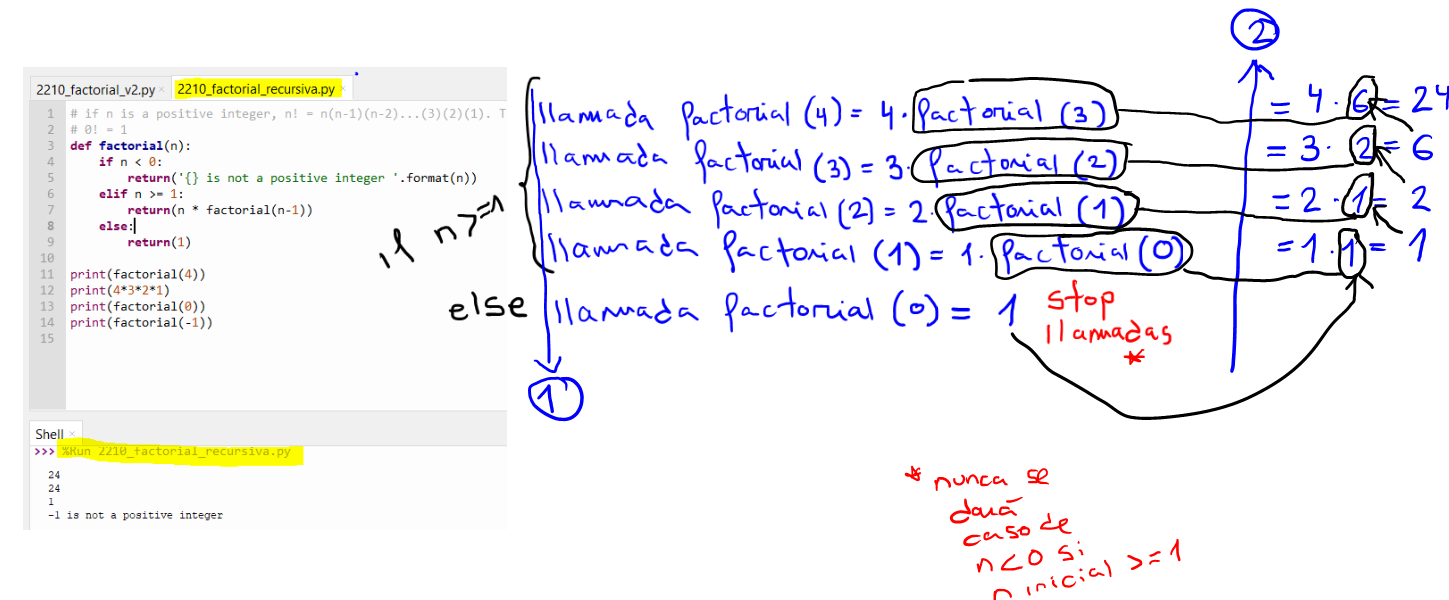 2210_factorial_v2.py × 2210_factorial_recursiva.py ×
1 # if n is a positive integer, n! = n(n-1)(n-2)...(3)(2)(1). T
2 # 0! = 1
3 def factorial(n):
4     if n < 0:
5         return('{} is not a positive integer '.format(n))
6     elif n >= 1:
7         return(n * factorial(n-1))
8     else:
9         return(1)
10
11 print(factorial(4))
12 print(4*3*2*1)
13 print(factorial(0))
14 print(factorial(-1))
15
Shell ×
>>> %Run 2210_factorial_recursiva.py
24
24
1
-1 is not a positive integer
2
llamada factorial (4) = 4. factorial (3) = 4 . 6 = 24
llamada factorial (3) = 3. factorial (2) = 3 . 2 = 6
llamada factorial (2) = 2. factorial (1) = 2 . 1 = 2
llamada factorial (1) = 1. factorial (0) = 1 . 1 = 1
if n >=1
else llamada factorial (0) = 1 stop
llamadas
*
1
* nunca se
dará
caso de
n<0 si
n inicial >=1